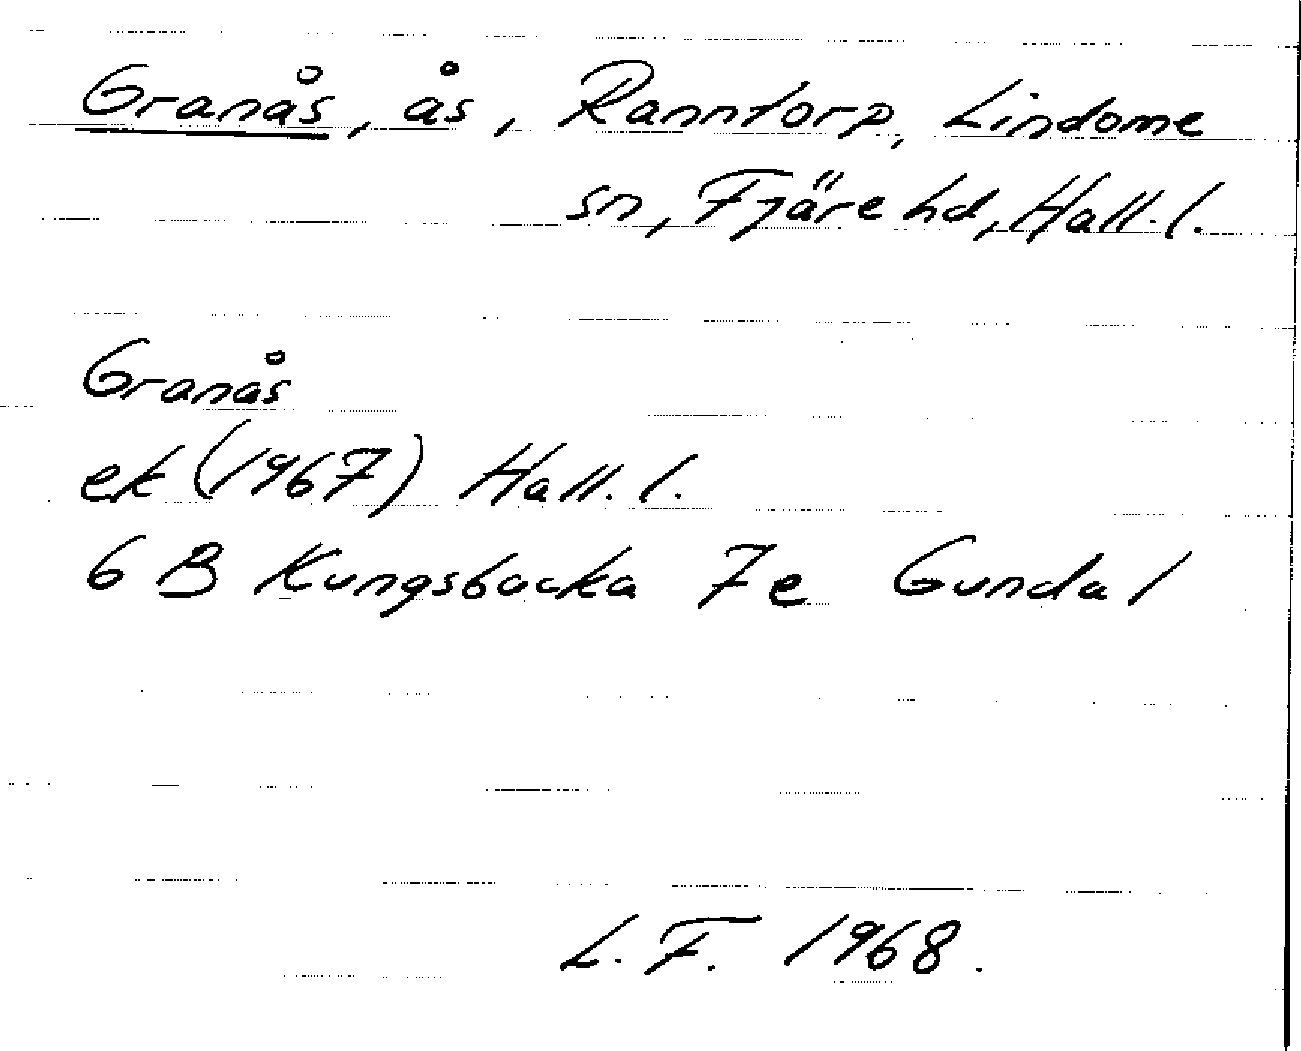 Granås, ås, Ranntorp, Lindome
sn, Fjäre hd, Hall. l.
Granås
ek (1967) Hall. l.
6 B Kungsbacka 7e Gundal
L. F. 1968.